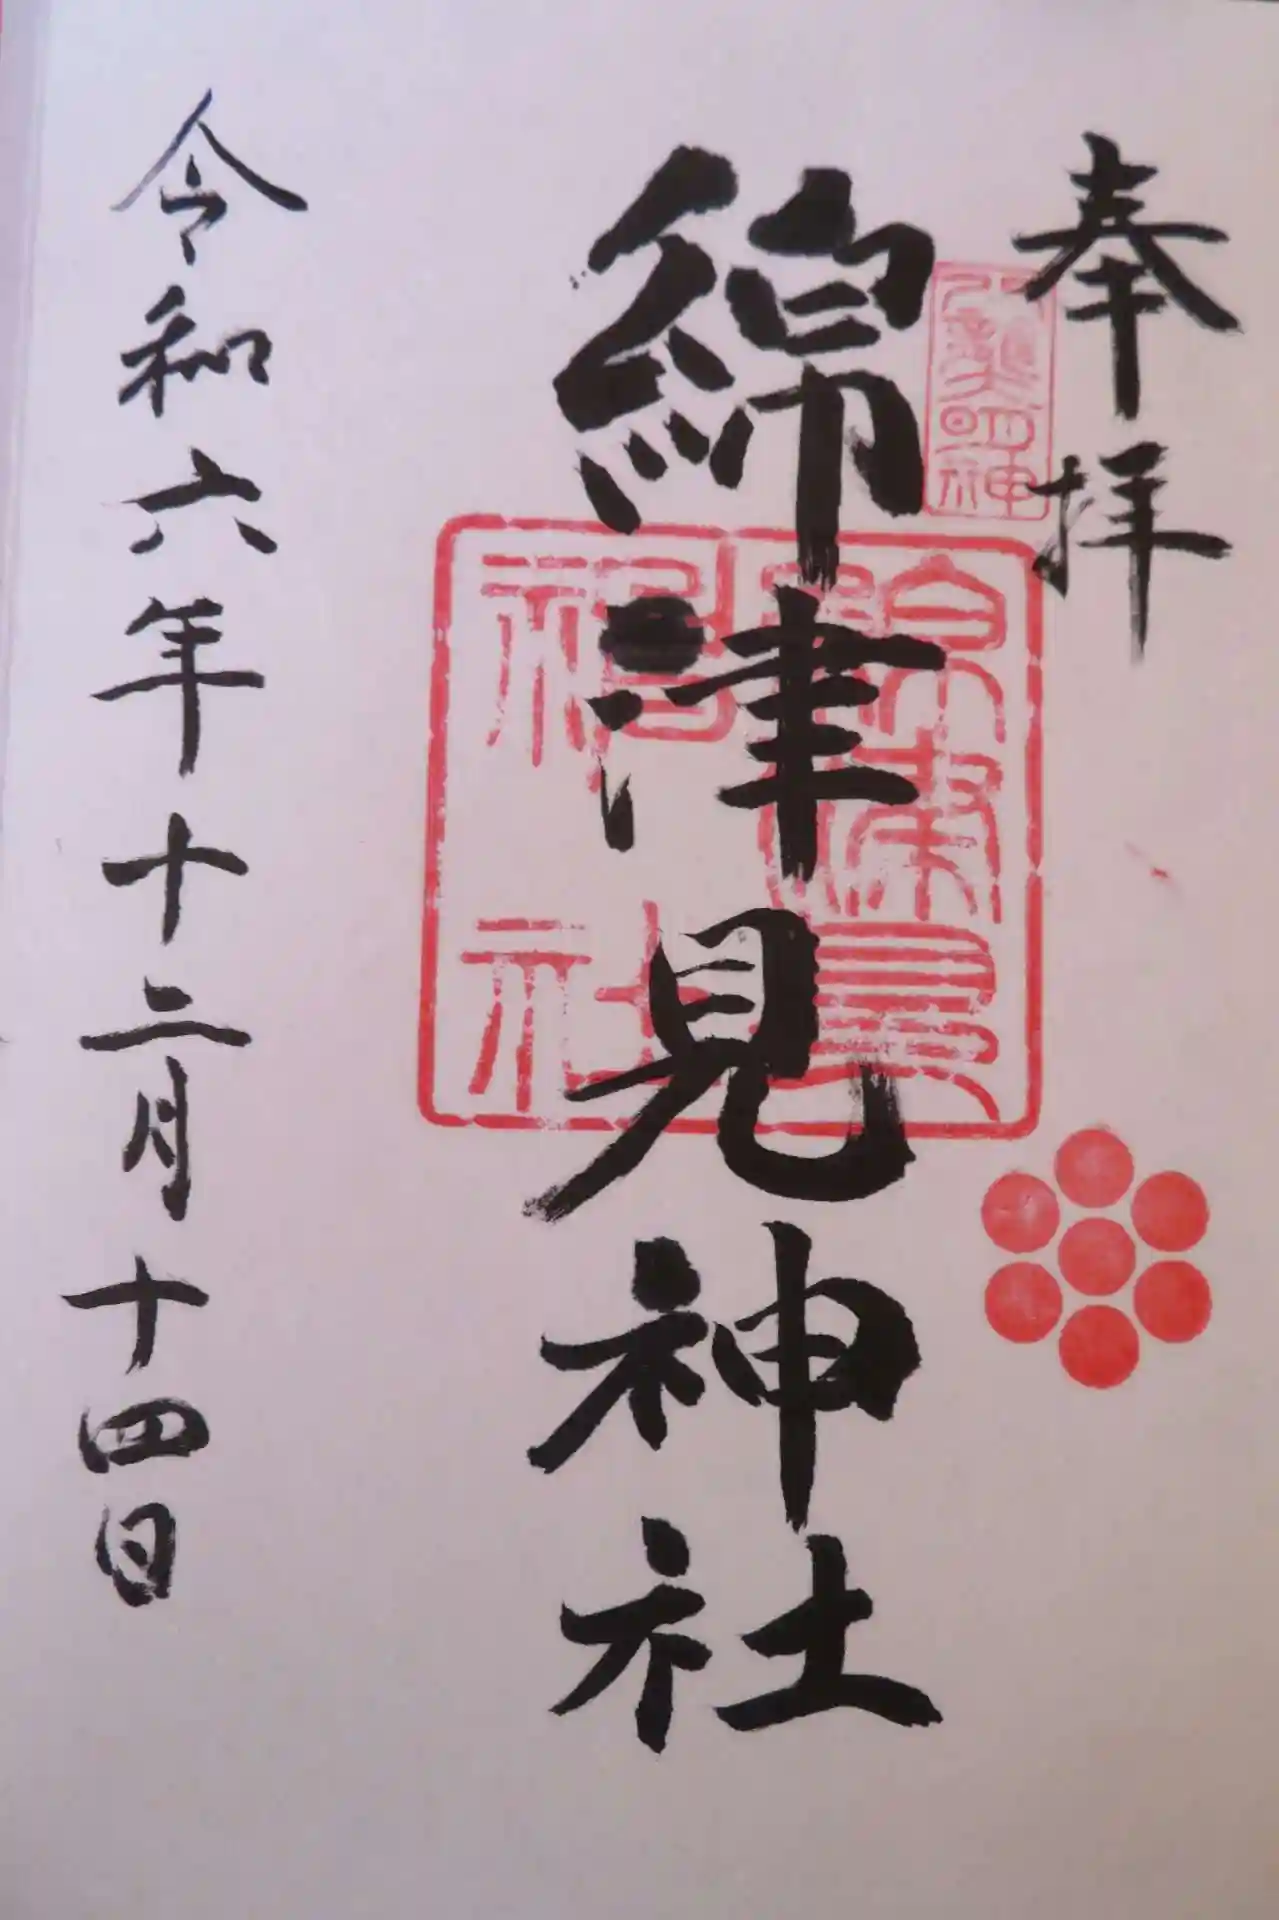 奉拝
八龍明神
綿津見神社
綿津見神社
令和六年十二月十四日